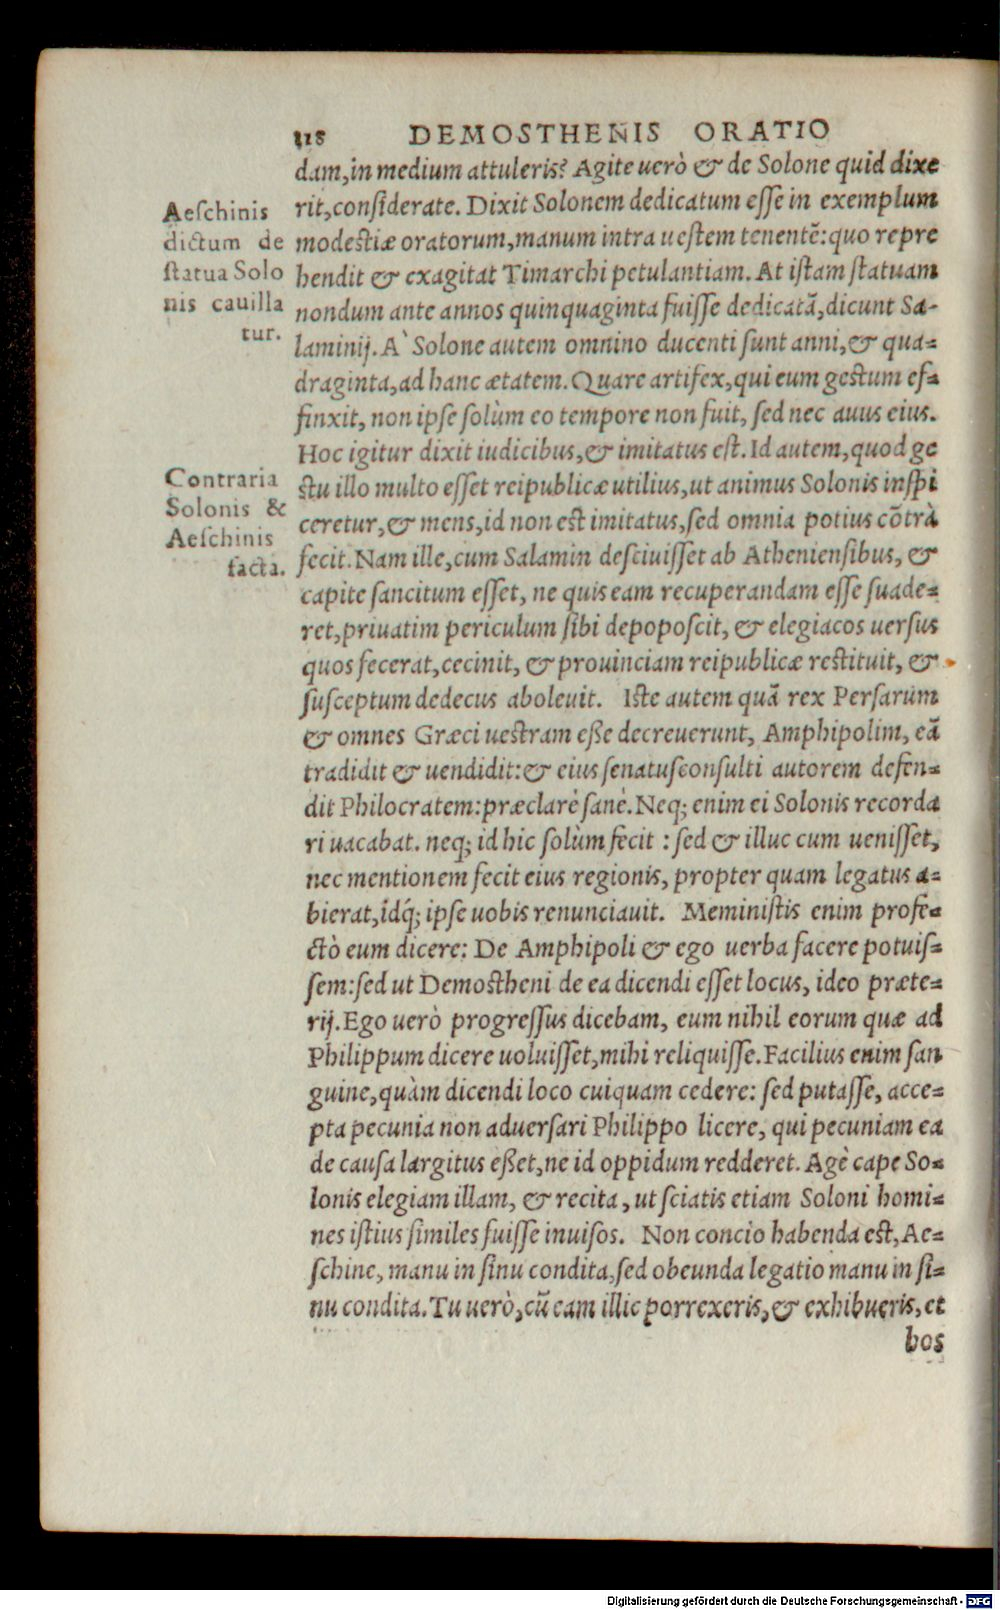 118 DEMOSTHENIS ORATIO
dam, in medium attuleris? Agite uerò & de Solone quid dixe
rit, considerate. Dixit Solonem dedicatum esse in exemplum
modestiæ oratorum, manum intra uestem tenentẽ: quo repre
hendit & exagitat Timarchi petulantiam. At istam statuam
nondum ante annos quinquaginta fuisse dedicatã, dicunt Sa-
laminij. À Solone autem omnino ducenti sunt anni, & qua-
draginta, ad hanc ætatem. Quare artifex, qui eum gestum ef-
finxit, non ipse solùm eo tempore non fuit, sed nec auus eius.
Hoc igitur dixit iudicibus, & imitatus est. Id autem, quod ge
stu illo multo esset reipublicæ utilius, ut animus Solonis inspi
ceretur, & mens, id non est imitatus, sed omnia potius cõtrà
fecit. Nam ille, cum Salamin desciuisset ab Atheniensibus, &
capite sancitum esset, ne quis eam recuperandam esse suade-
ret, priuatim periculum sibi depoposcit, & elegiacos uersus
quos fecerat, cecinit, & prouinciam reipublicæ restituit, &
susceptum dedecus aboleuit. Iste autem quã rex Persarum
& omnes Græci uestram eße decreuerunt, Amphipolim, eã
tradidit & uendidit: & eius senatusconsulti autorem defen-
dit Philocratem: præclarè sanè. Neq; enim ei Solonis recorda
ri uacabat. neq; id hic solùm fecit : sed & illuc cum uenisset,
nec mentionem fecit eius regionis, propter quam legatus a-
bierat, idq́; ipse uobis renunciauit. Meministis enim profe-
ctò eum dicere: De Amphipoli & ego uerba facere potuis-
sem: sed ut Demostheni de ea dicendi esset locus, ideo præte-
rij. Ego uerò progressus dicebam, eum nihil eorum quæ ad
Philippum dicere uoluisset, mihi reliquisse. Facilius enim san
guine, quàm dicendi loco cuiquam cedere: sed putasse, acce-
pta pecunia non aduersari Philippo licere, qui pecuniam ea
de causa largitus eßet, ne id oppidum redderet. Agè cape So-
lonis elegiam illam, & recita, ut sciatis etiam Soloni homi-
nes istius similes fuisse inuisos. Non concio habenda est, Ae-
schine, manu in sinu condita, sed obeunda legatio manu in si-
nu condita. Tu uerò, cũ eam illic porrexeris, & exhibueris, et
hos
Aeschinis
dictum de
statua Solo
nis cauilla
tur.
Contraria
Solonis &
Aeschinis
facta.
Digitalisierung gefördert durch die Deutsche Forschungsgemeinschaft - DFG